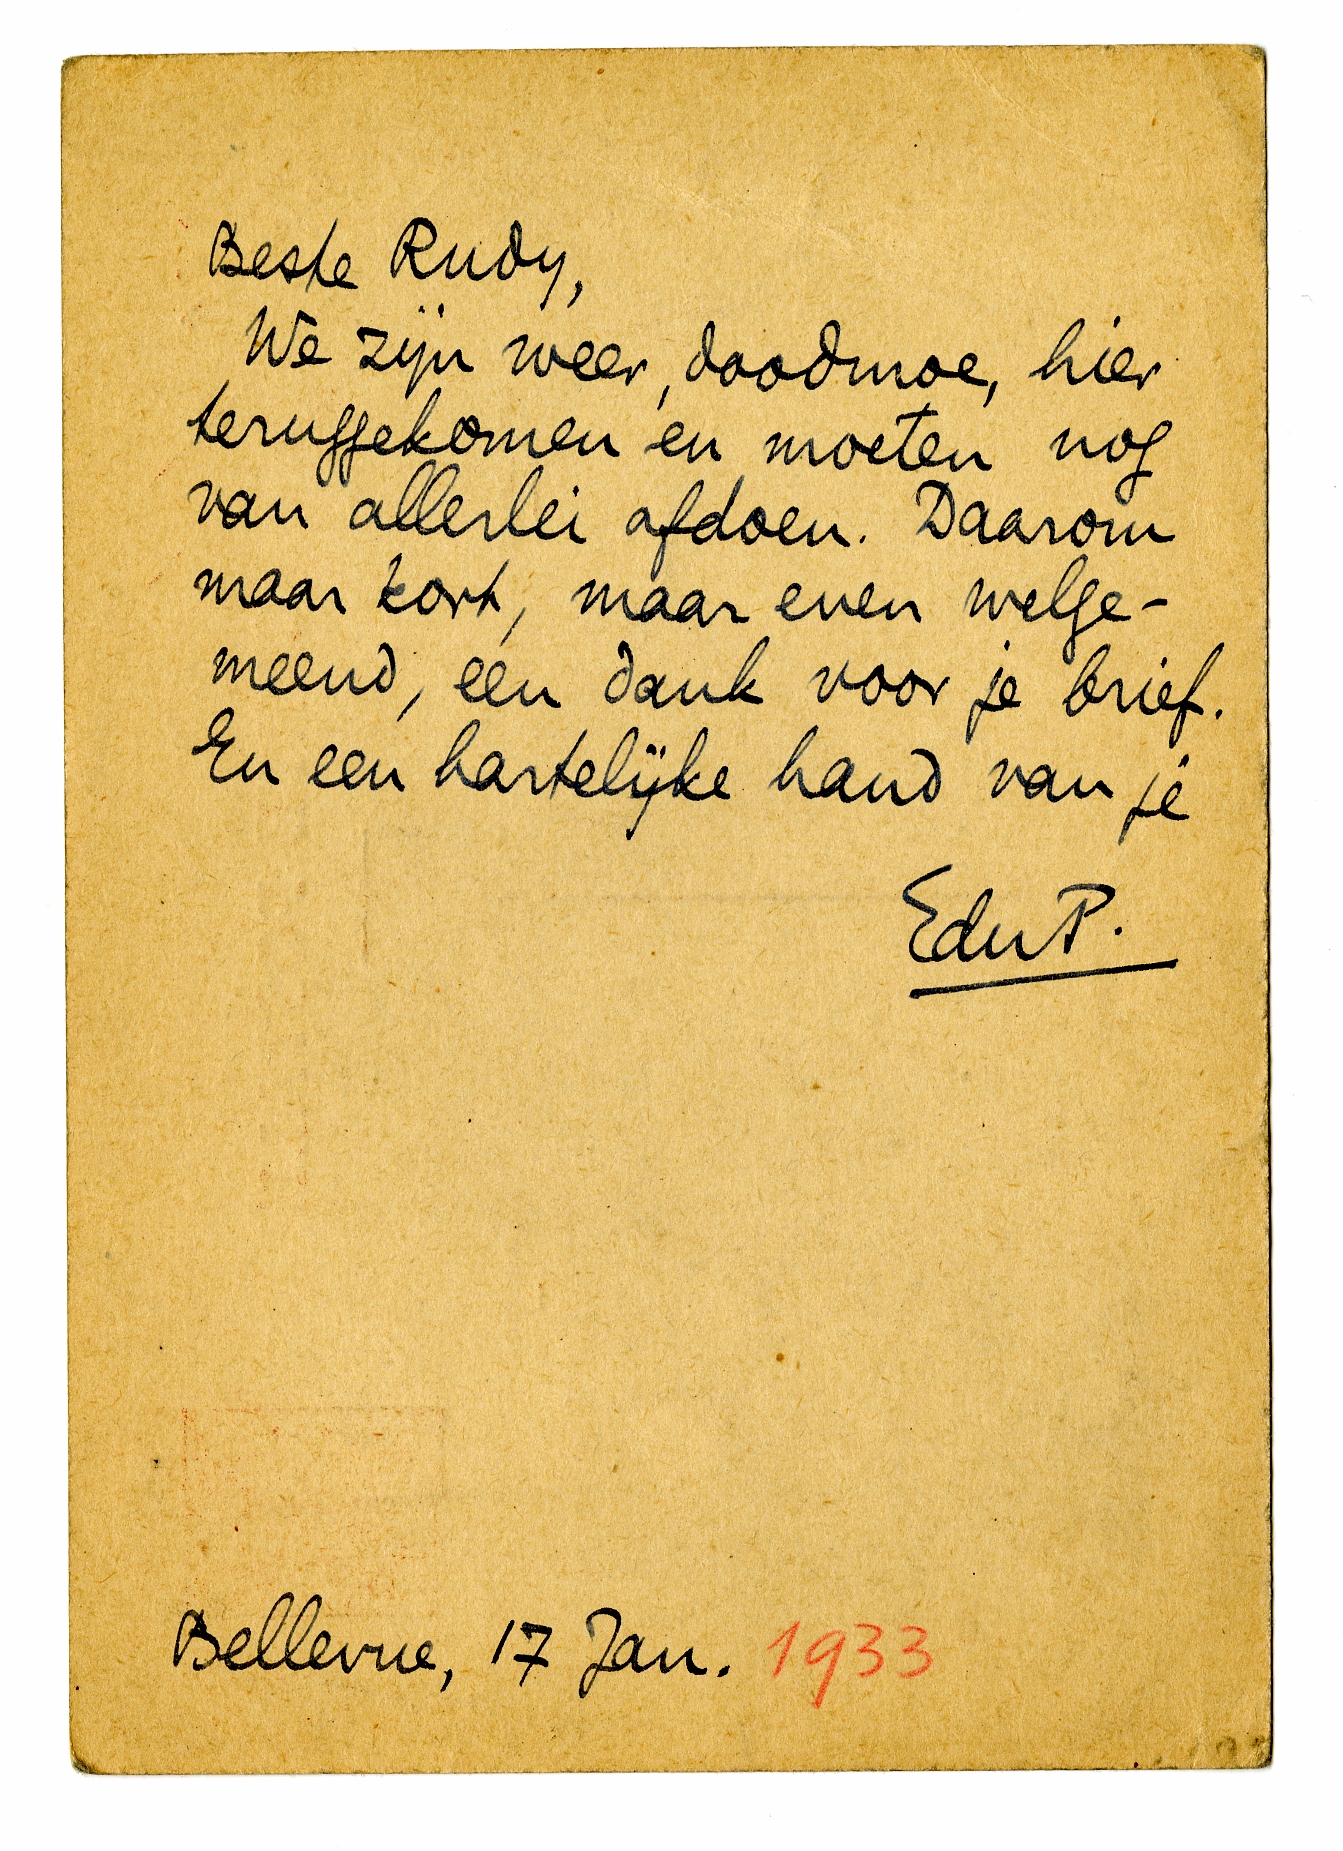 Beste Rudy,
We zijn weer, doodmoe, hier
teruggekomen en moeten nog
van allerlei afdoen. Daarom
maar kort, maar even welge-
meend, een dank voor je brief.
En een hartelijke hand van je
EduP.
Bellevue, 17 Jan. 1933